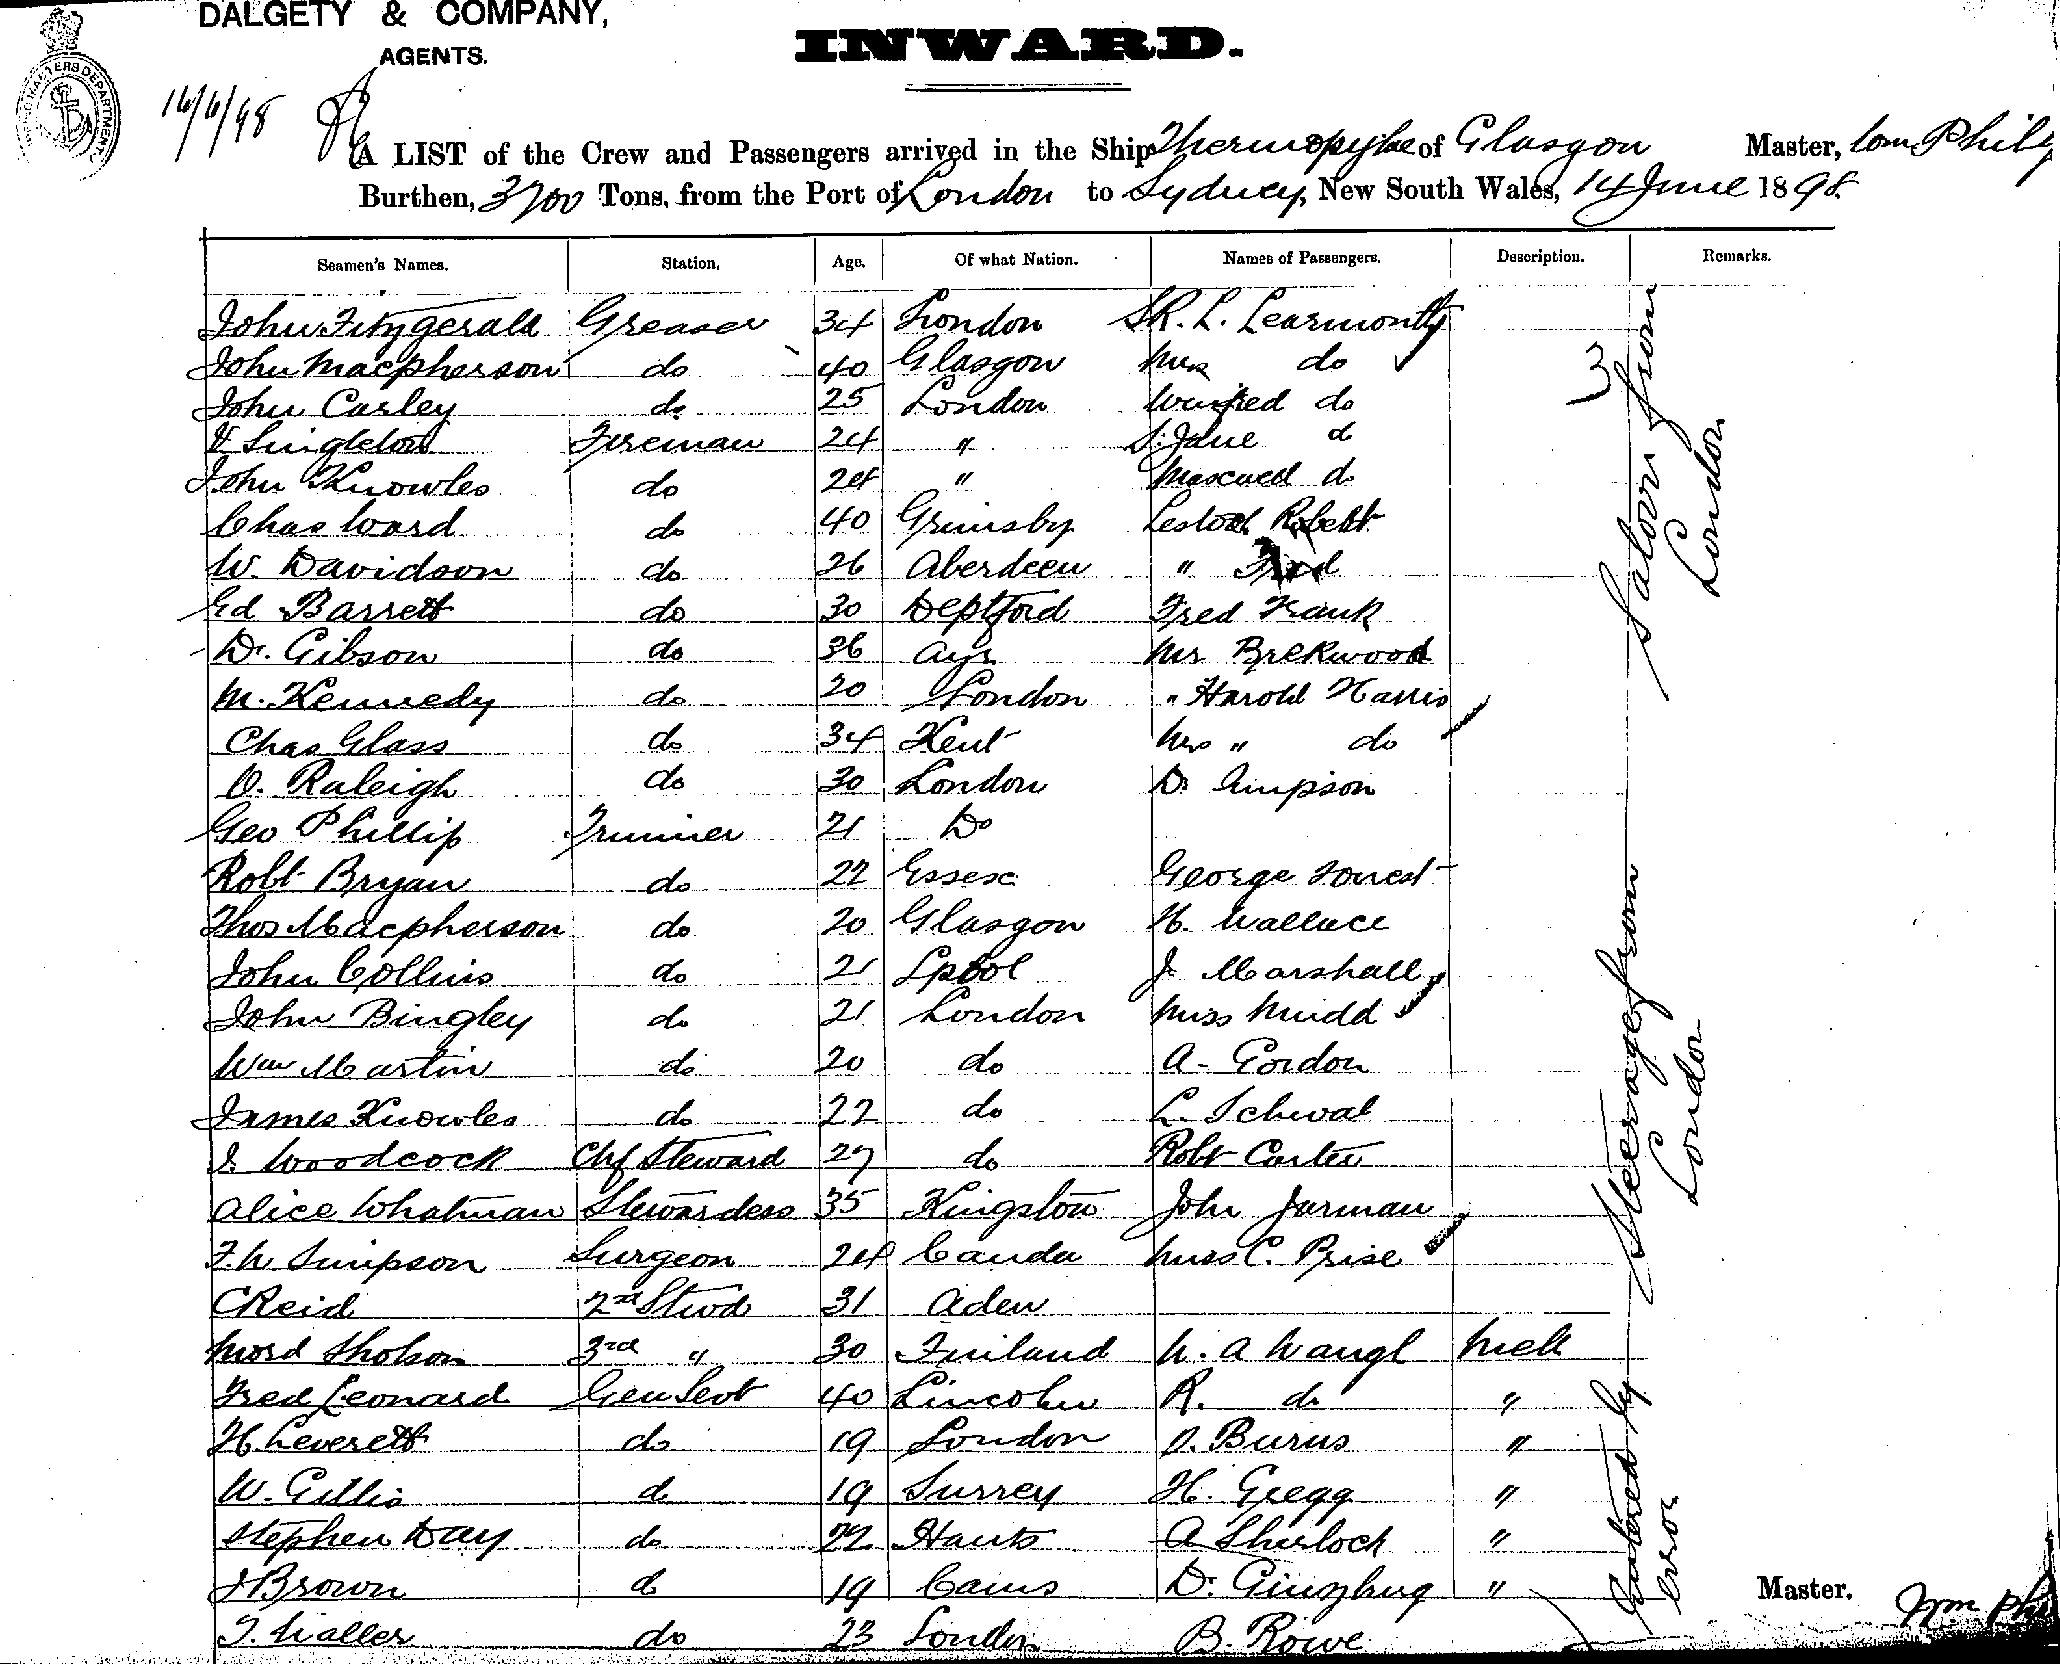 DALGETY & COMPANY,
AGENTS.
INWARD.
16/6/98
A LIST of the Crew and Passengers arrived in the Ship Thermopylae of Glasgow Master, Wm Philip
Burthen, 3700 Tons, from the Port of London to Sydney, New South Wales, 14 June 1898.
Seamen's Names. Station, Age. Of what Nation. Names of Passengers. Description. Remarks.
John Fitzgerald Greaser 34 London R. L. Learmonth
John Macpherson do 40 Glasgow Mrs do 3
John Carley do 25 London Winifred do
V Singleton Fireman 24 " S. Jane d
John Knowles do 24 " do
Chas Ward do 40 Grimsby Lestock Robert
W. Davidson do 26 Aberdeen " Fred
Ed Barrett do 30 Deptford Fred Frank
D. Gibson do 36 Ayr Mr Brekwood
M. Kennedy do 20 London " Harold Harris
Chas Glass do 34 Kent Mrs " do
O. Raleigh do 30 London Dr Simpson
Geo Phillip Trimmer 21 Do
Robt Bryan do 22 Essex George Forrest
Thos Macpherson do 20 Glasgow H. Wallace
John Collins do 21 Lpool J. Marshall
John Bingley do 21 London Miss Mudd
Wm Martin do 20 do A. Gordon
James Knowles do 22 do L. Schwal
J. Woodcock Chf Steward 27 do Robt Carter
Alice Whatman Stewardess 35 Kingston John Jarman
F. W Simpson Surgeon 24 Canda Miss C. Prise
C Reid 2nd Stwd 31 Aden
3rd " 30 Finland W. A Waugh
Fred Leonard Gen Sevt 40 Lincoln R. do "
H. Leverett do 19 London D. Burns "
W. Gillis do 19 Surrey H. Gregg "
Stephen Day do 22 Hants A Sherlock "
J Brown d 19 Cams D. Ginzburg "
T. Waller do 23 London B. Rowe
Saloon from
London
Steerage from
London
Entered by
error
Master. Wm Phi